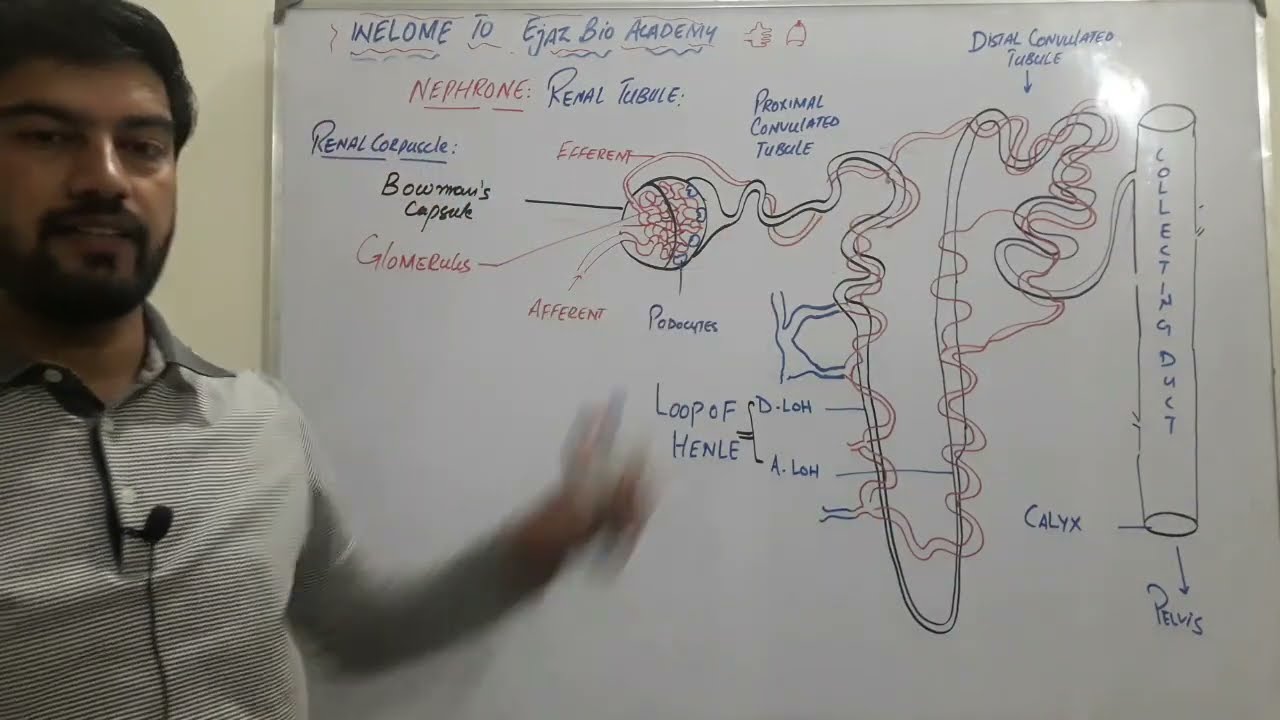 WELOME TO EJAZ BIO ACADEMY
NEPHRONE: RENAL TUBULE:
DISTAL CONVULLATED
TUBULE
RENAL CORPUSCLE:
PROXIMAL
CONVULLATED
TUBULE
EFFERENT
BOWMAN'S
CAPSULE
GLOMERULUS
AFFERENT
PODOCYTES
COLLECTING DUCT
LOOP OF
HENLE
D.LOH
A.LOH
CALYX
PELVIS